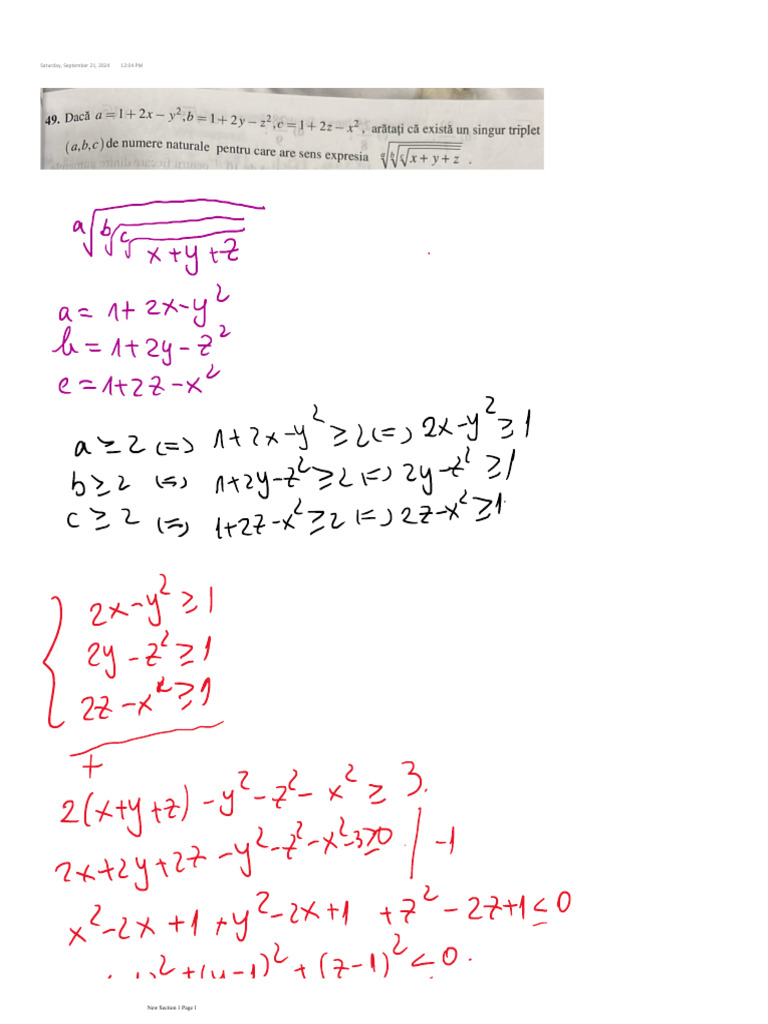 Saturday, September 21, 2024 12:04 PM
49. Dacă a = 1 + 2x − y², b = 1 + 2y − z², c = 1 + 2z − x², arătați că există un singur triplet
(a,b,c) de numere naturale pentru care are sens expresia ᵃ√(ᵇ√(ᶜ√(x + y + z))) .
ᵃ√(ᵇ√(ᶜ√(x+y+z)))
a = 1 + 2x − y²
b = 1 + 2y − z²
c = 1 + 2z − x²
a ≥ 2 (=) 1+2x−y² ≥ 2 (=) 2x−y² ≥ 1
b ≥ 2 (=) 1+2y−z² ≥ 2 (=) 2y−z² ≥ 1
c ≥ 2 (=) 1+2z−x² ≥ 2 (=) 2z−x² ≥ 1
{ 2x−y² ≥ 1
2y−z² ≥ 1
2z−x² ≥ 1
+
2(x+y+z) −y²−z²−x² ≥ 3.
2x+2y+2z −y²−z²−x²−3 ≥ 0 | −1
x²−2x+1+y²−2x+1 +z²−2z+1 ≤ 0
²+(y−1)²+(z−1)² ≤ 0.
New Section 1 Page 1